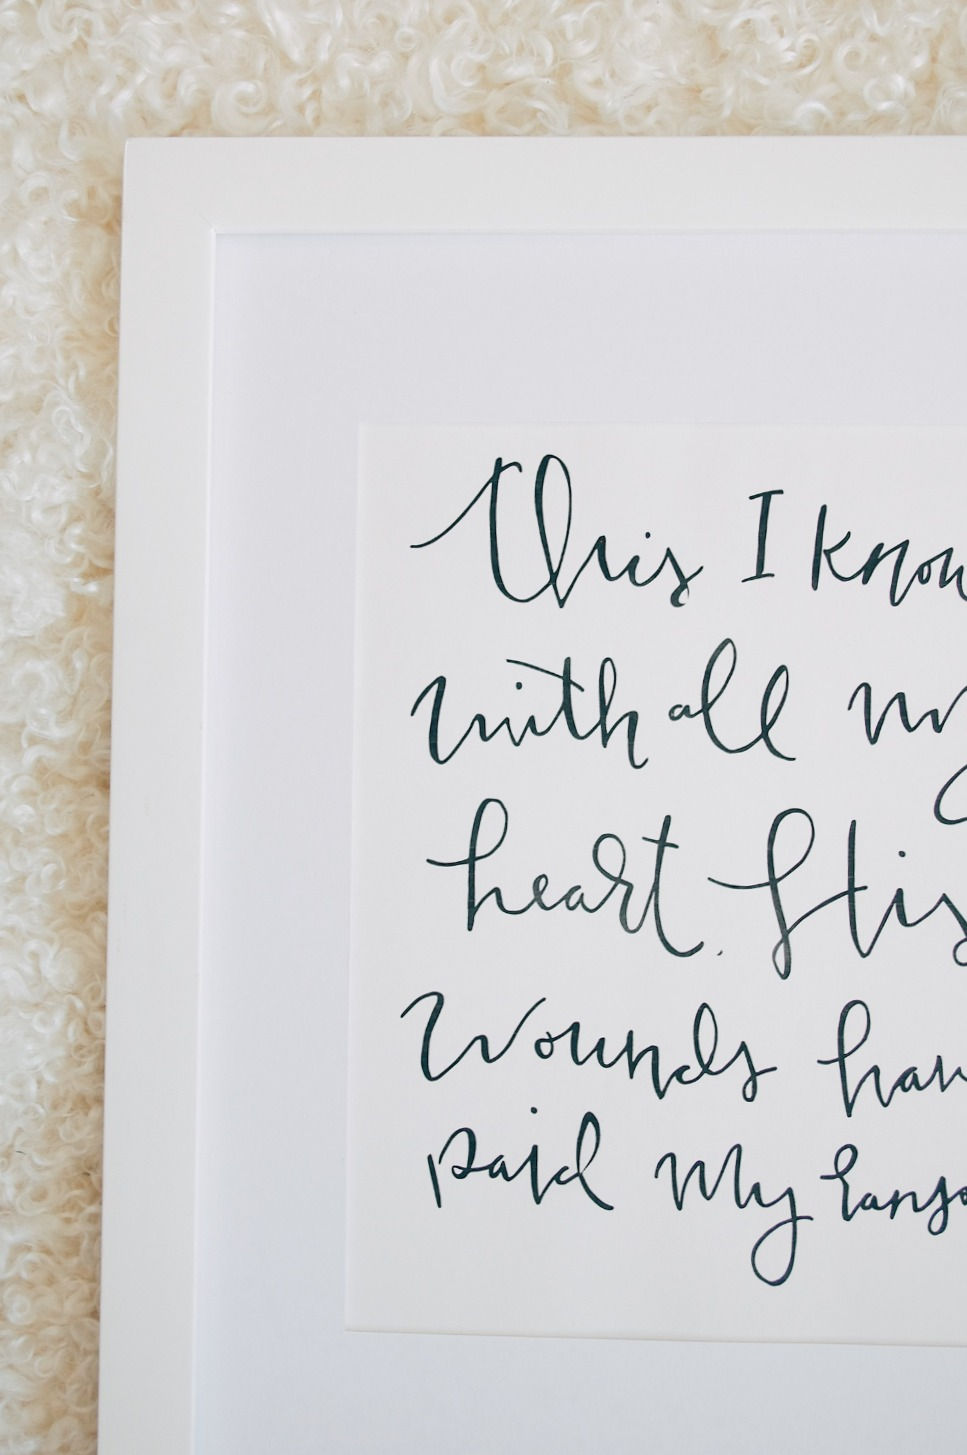 this I know
with all my
heart. His
Wounds have
paid my ranso